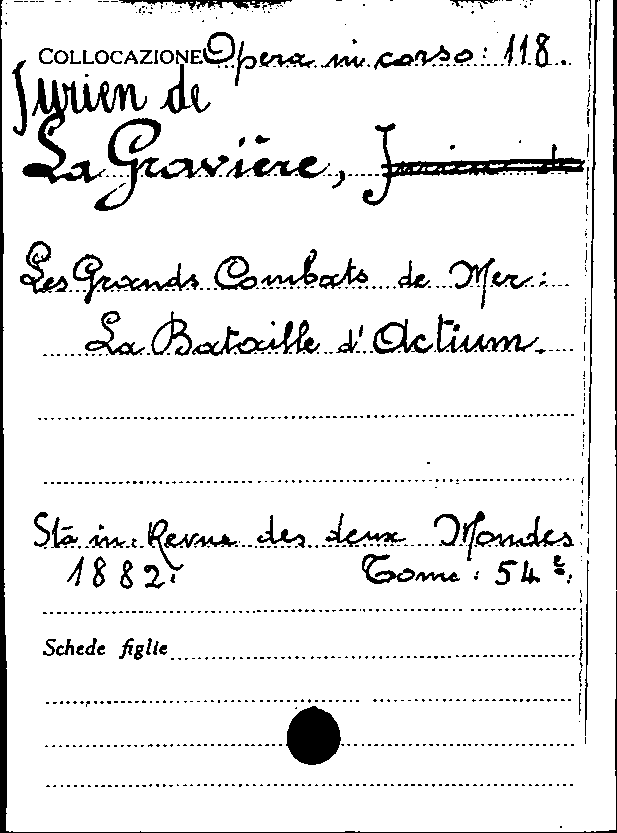 COLLOCAZIONE Opera in corso: 118.
Jurien de
La Gravière, Jurien de
Les Grands Combats de Mer:
La Bataille d'Actium.
Sta in: Revue des deux Mondes
1882. Tome: 54e.
Schede figlie